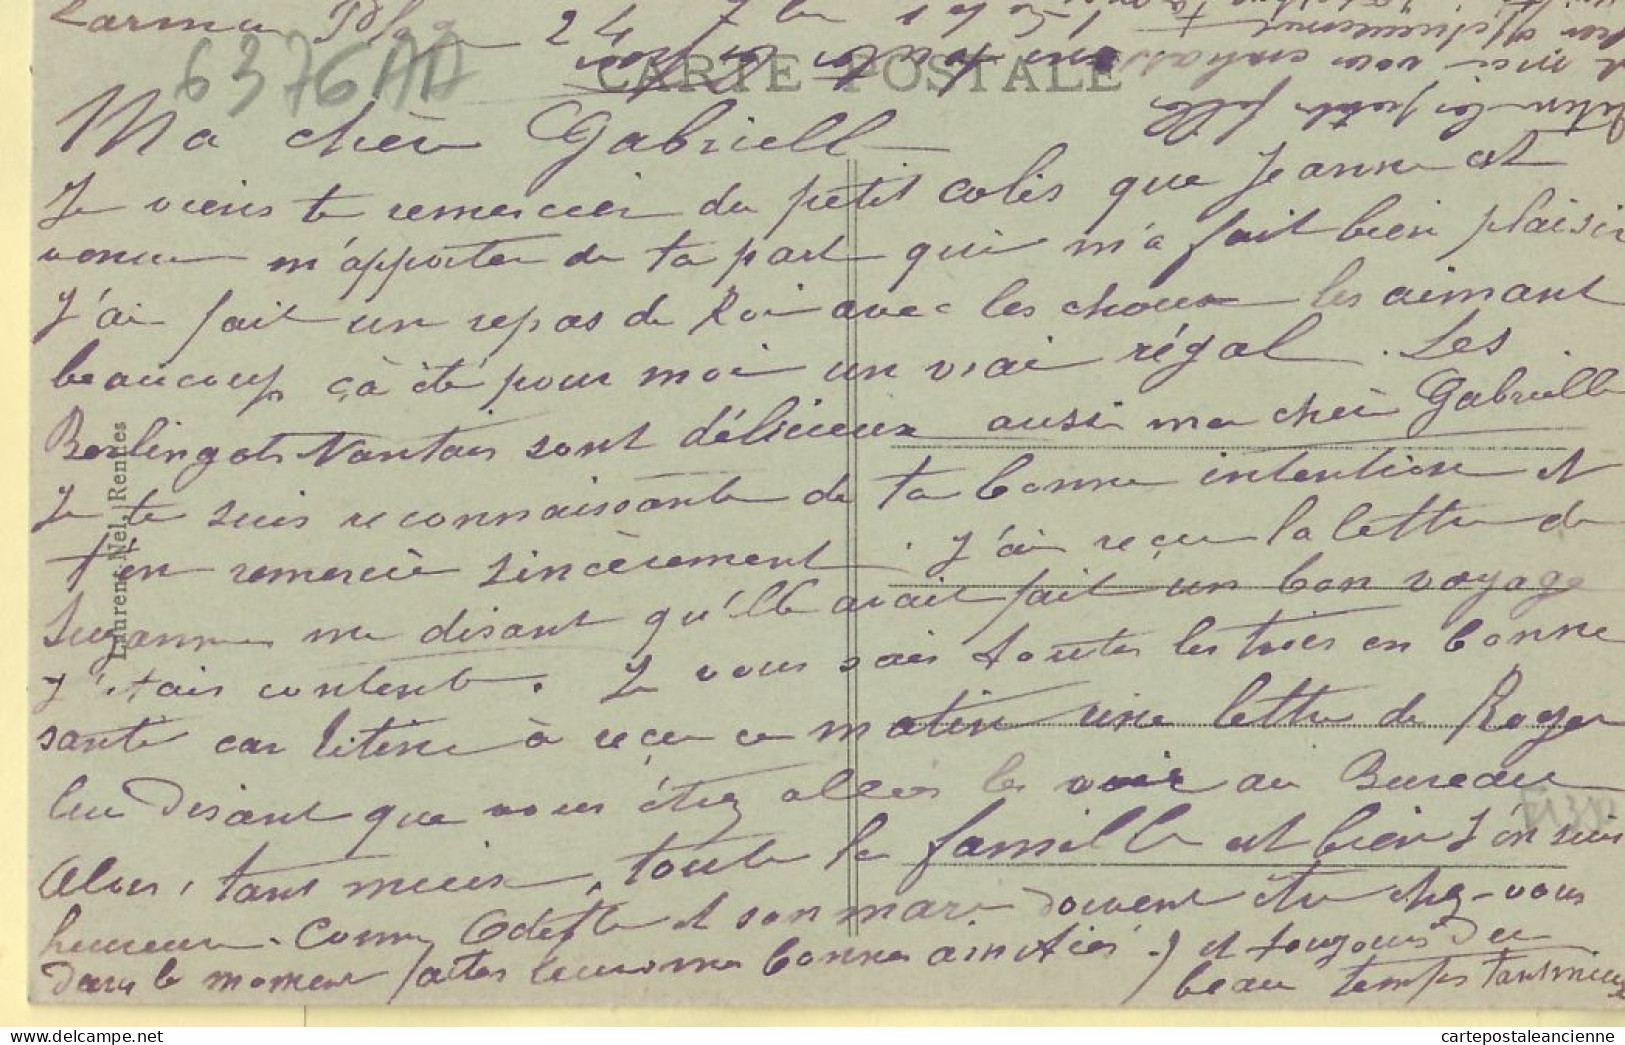 Larmor Plage 24 7bre
6376AA
CARTE POSTALE
Ma chère Gabrielle
Je viens te remercier du petit colis que Jeanne est
venue m'apporter de ta part qui m'a fait bien plaisir
J'ai fait un repas de Roi avec les choux les aimant
beaucoup çà été pour moi un vrai régal. Les
Berlingots Nantais sont délicieux aussi ma chèr Gabrielle
Je te suis reconnaissante de ta bonne intention et
t'en remercie sincèrement. J'ai reçu la lettre de
Suzanne me disant qu'elle avait fait un bon voyage
j'étais contente. Je vous sais toutes les trois en bonne
santé car Titine à reçu ce matin une lettre de Roger
lui disant que vous étiez allées le voir au Bureau
Alors, tant mieux, toute la famille est bien j'en suis
heureuse. Comme Odette et son mari doivent être chez-vous
dans le moment faites leurs mes bonnes amitiés.) et toujours du
beau temps tant mieux
Titine les petites filles
et moi vous embrassons toutes
bien affectueusement
Laurent-Nel, Rennes
cartepostaleancienne